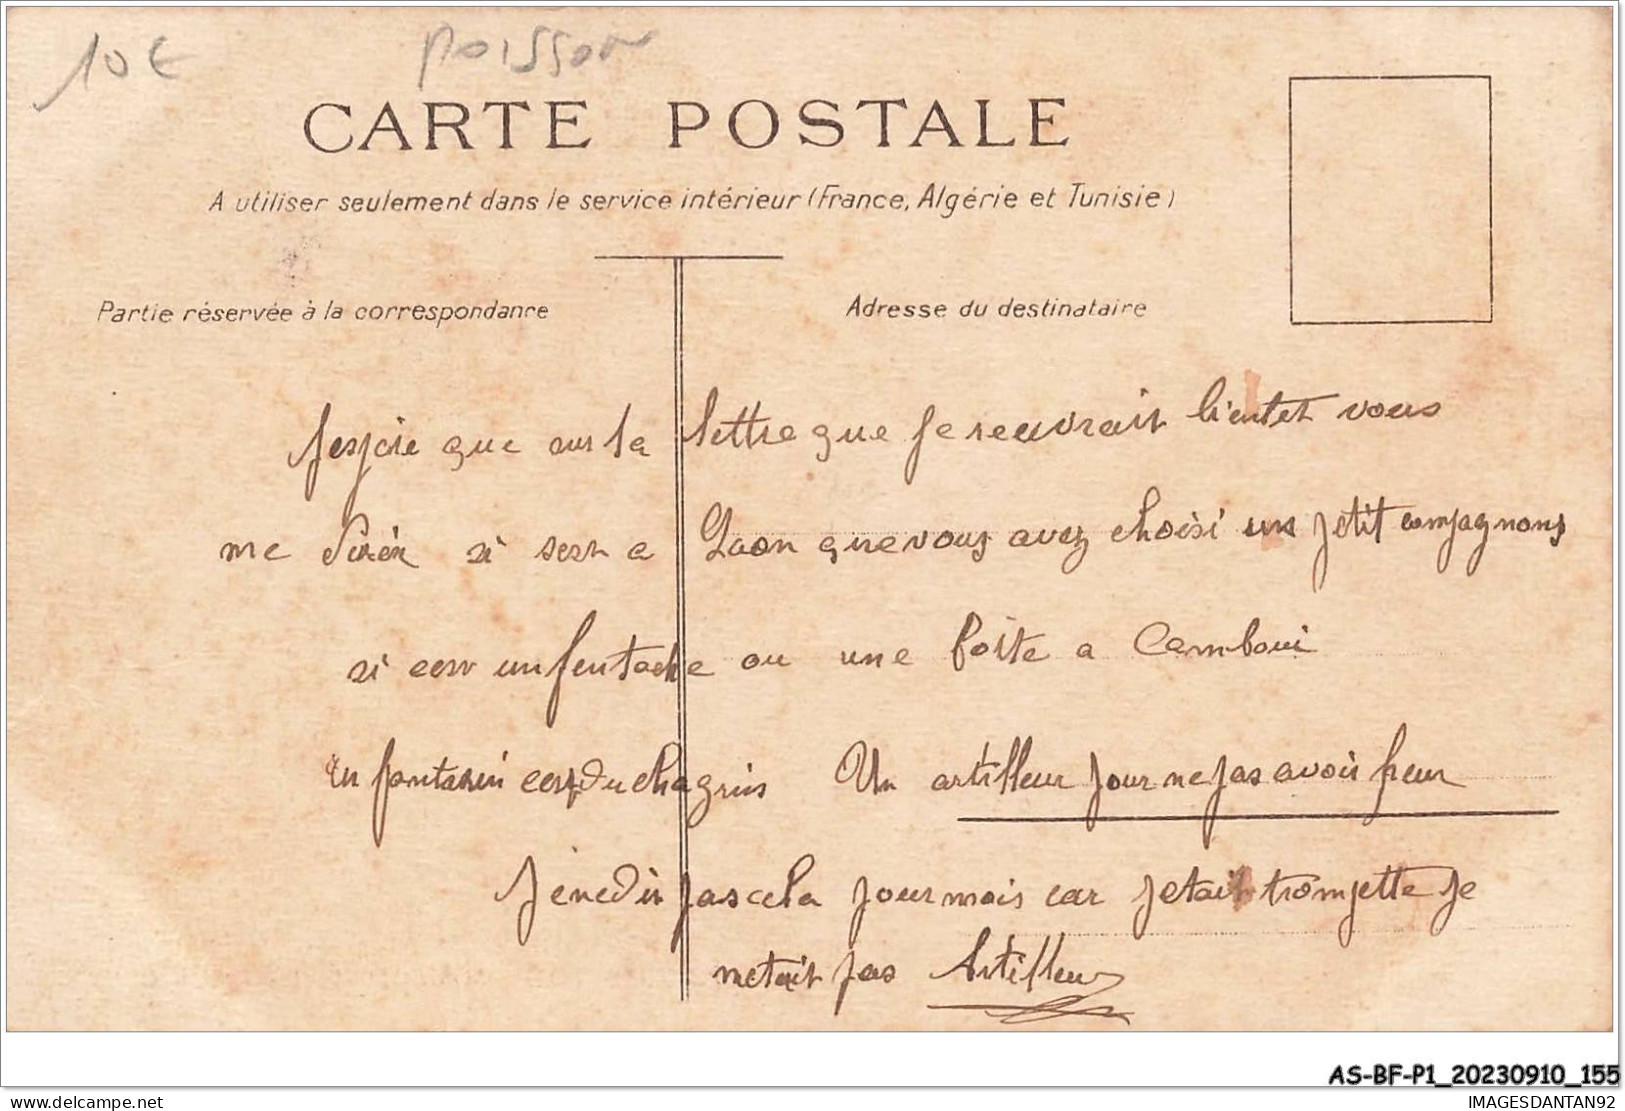 10€ poisson
CARTE POSTALE
A utiliser seulement dans le service intérieur (France, Algérie et Tunisie)
Partie réservée à la correspondance
Adresse du destinataire
Jespère que sur la lettre que je recuvrait bientet vous
me direz si sest a Laon que vous avez choisi un petit compagnons
si cest un pentache ou une boite a Camboui
un fantasin cest du chagrins Un artilleur pour ne pas avoir peur
Je ne dis pas cela pour mois car jetait trompette je
netait pas Artilleur
AS-BF-P1_20230910_155
delcampe.net
IMAGESDANTAN92